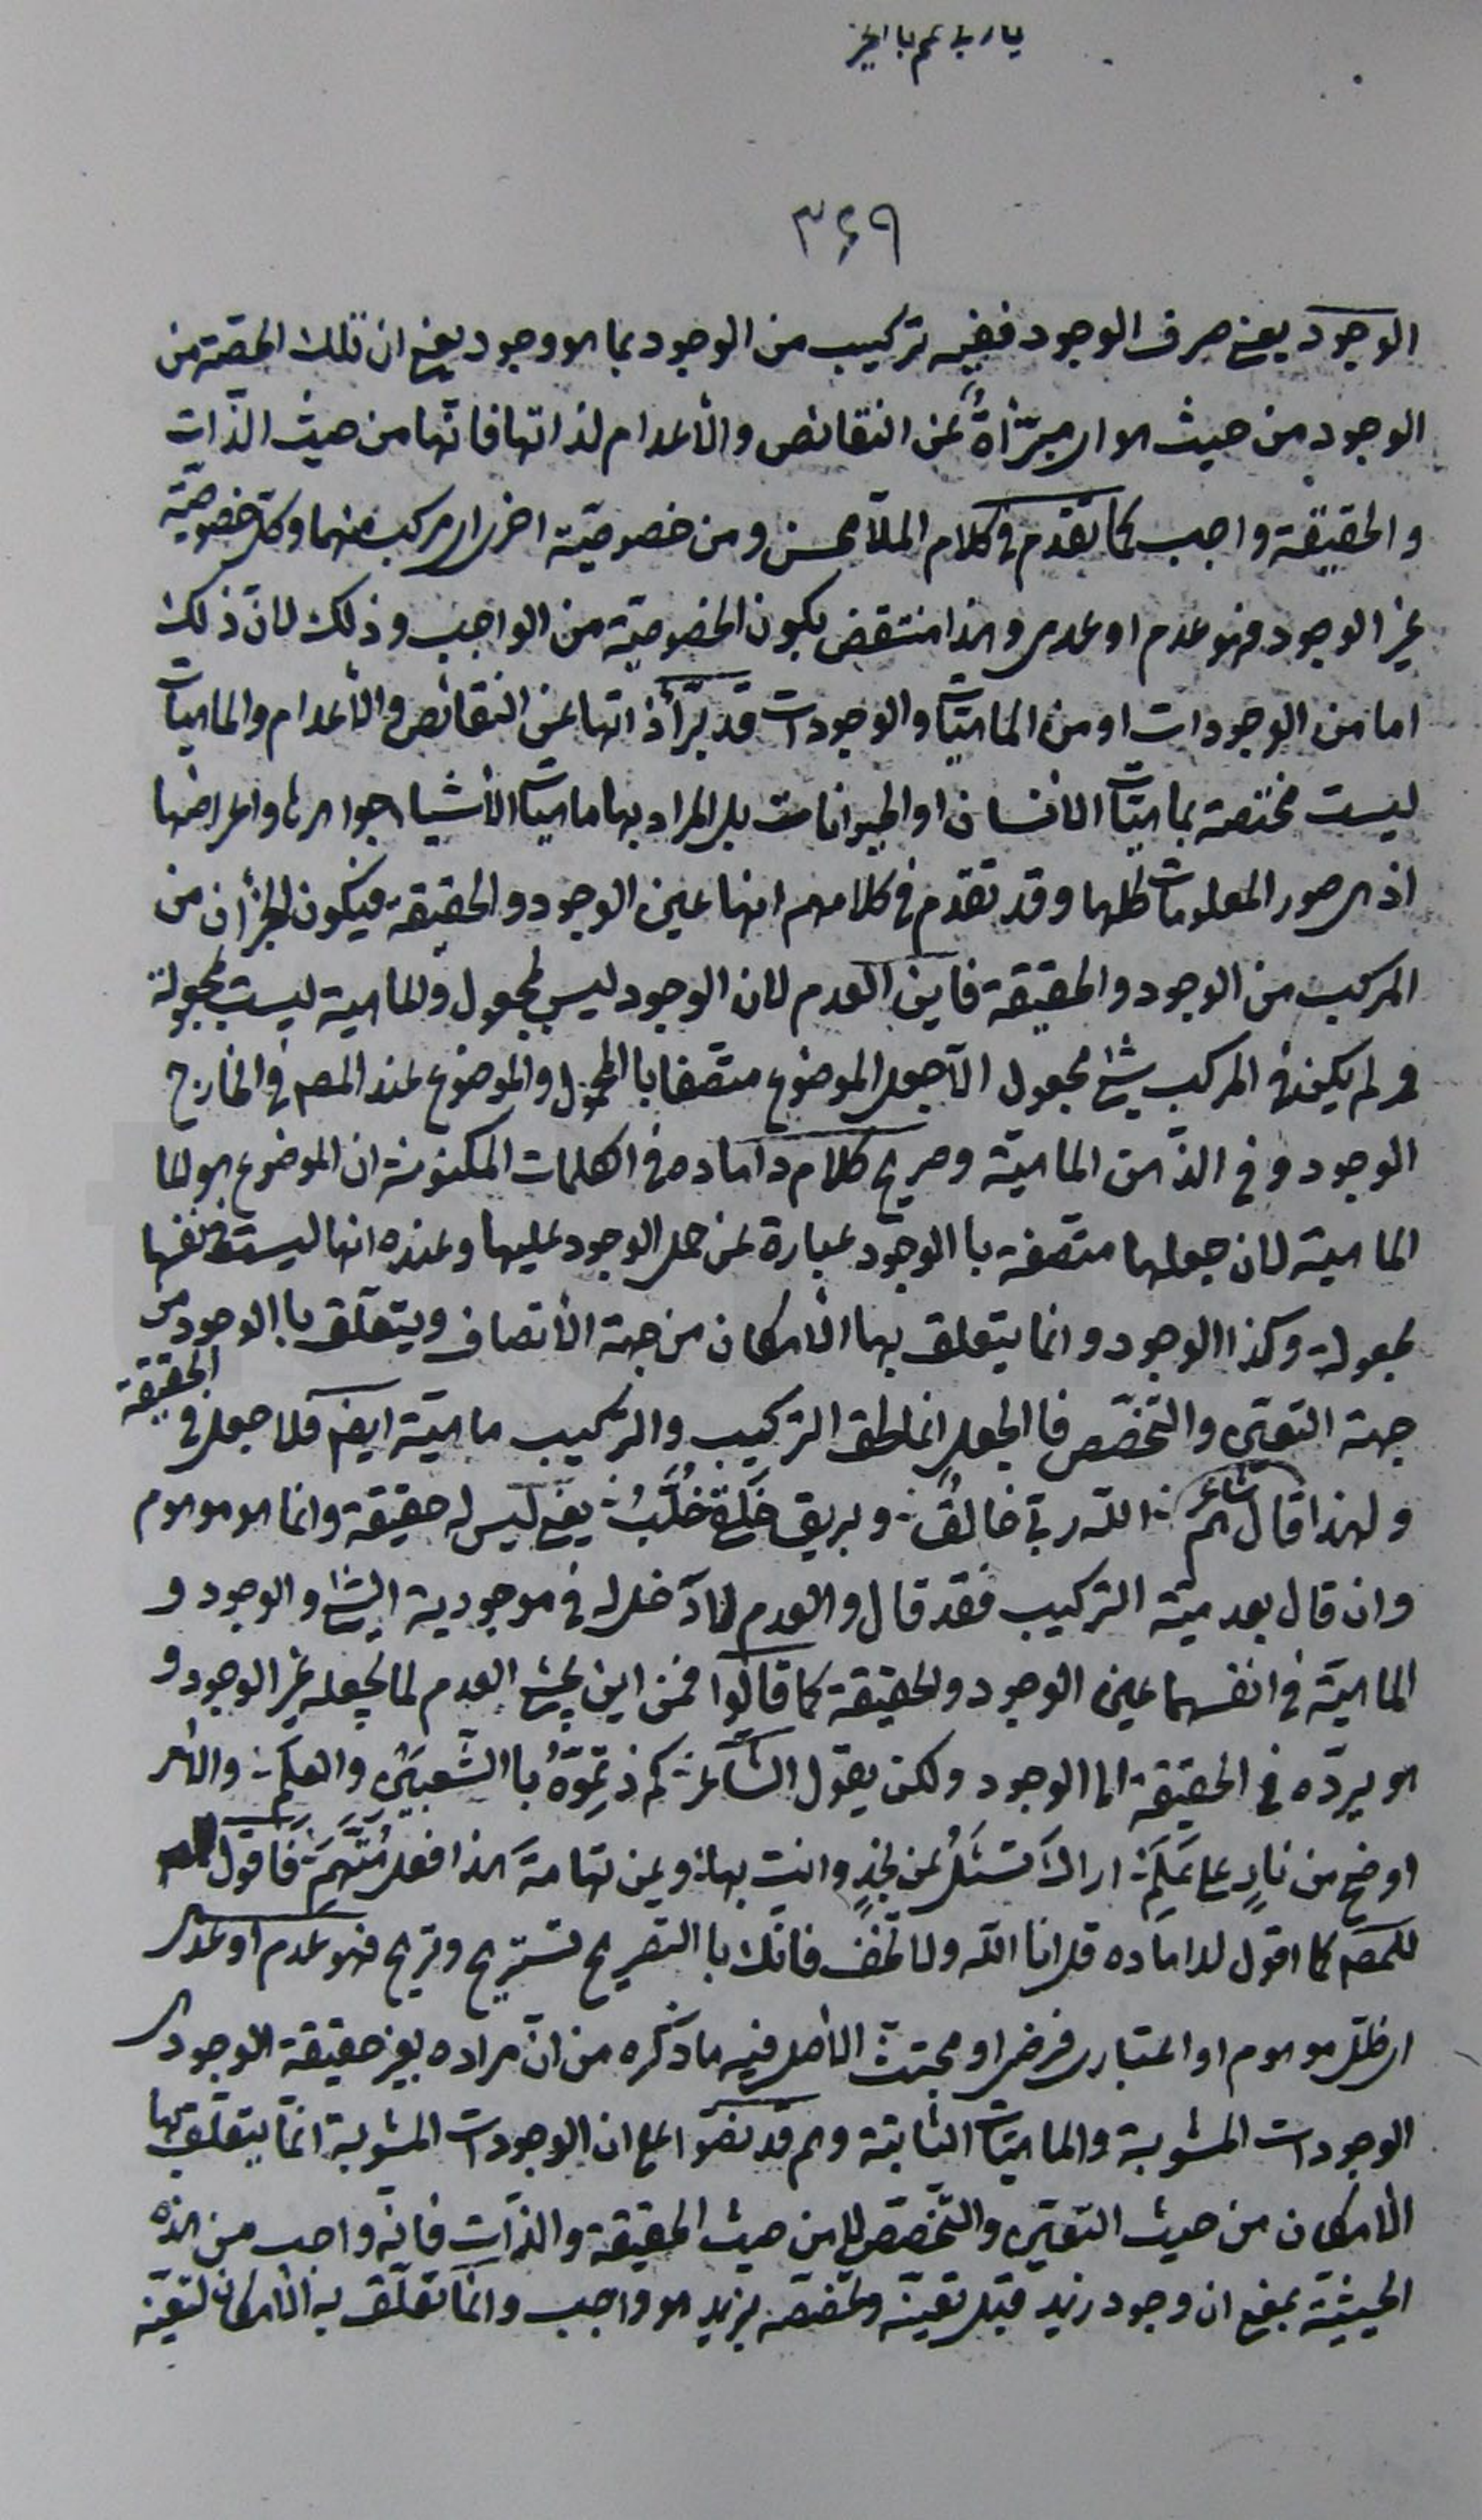 یا رب تمم بالخیر
۳۶۹
الوجود یعنی صرف الوجود ففیه ترکیب من الوجود بما هو وجود یعنی ان تلک الحصة من
الوجود من حیث هو ای مبرّأة عن النقائص والأعدام لذاتها فانّها من حیث الذّات
والحقیقة واجب کما تقدم فی کلام الملّا محسن ومن خصوصیّة اخری ای مرکب منهما وکل خصوصیّة
غیر الوجود فهو عدم او عدمی وهذا منتقض بکون الخصوصیّة من الواجب وذلک لانّ ذلک
اما من الوجودات او من الماهیّات والوجودات قد برّأ ذاتها عن النقائص والأعدام والماهیات
لیست مختصة بماهیّات الانسان او الحیوانات بل المراد بها ماهیّات الأشیاء جواهرها واعراضها
اذ هی صور المعلومات کلها وقد تقدم فی کلامهم انها عین الوجود والحقیقة فیکون الجزأن من
المرکب من الوجود والحقیقة فاین العدم لان الوجود لیس بمجعول والماهیة لیست بمجعولة
ولم یکن فی المرکب شیء مجعول الّا جعل الموضوع متصفا باالمحمول والموضوع عند المصـ فی الخارج
الوجود وفی الذّهن الماهیّة وصریح کلام داماده فی الکلمات المکنونة ان الموضوع هو لما
الماهیة لان جعلها متصفة باالوجود عبارة عن حمل الوجود علیها وعنده انها لیست فی نفسها
مجعولة وکذا الوجود وانما یتعلق بها الأمکان من جهة الأتصاف ویتعلّق باالوجود من
جهة التعیّن والتخصّص فاالجعل انما لحق الترکیب والترکیب ماهیّة ایضـ فلا جعل فی الحقیقة
ولهذا قال شاعرهم الله ربی خالق وبریق خلّة خُلَّبُ یعنی لیس له حقیقة وانما هو موهوم
وان قال بعدمیّة الترکیب فقد قال والعدم لا دخل له فی موجودیة الشیء والوجود و
الماهیّة فی انفسهما عین الوجود والحقیقة کما قالوا فمن این یجیء العدم لما یجعله غیر الوجود و
هو یردّه فی الحقیقة الی الوجود ولکن یقول الشّاعر کم ذ تموّهُ باالشّعبین والعلم والأمر
اوضح من نارٍ علی عَلَمِ اراک تسئلُ عن نجدٍ وانت بها وعن تهامةَ هذا فعل مُتَّهَمِ فاقول
للمصـ کما اقول لداماده قل انا الله ولا تخف فانّک باالتصریح تستریح وتریح فهو عدم او عدمی
ای ظلّ موهوم او اعتباری فرضی او مجتثّ الأصل فیه ما ذکره من انّ مراده بغیر حقیقة الوجود
الوجودات المشوبة والماهیّات الثابتة وهم قد نصّوا علی ان الوجودات المشوبة انّما یتعلّق بها
الأمکان من حیث التّعیّن والتّخصّص لا من حیث الحقیقة والذّات فانّه واجب من هذه
الحیثیّة بمعنی ان وجود زید قبل تعیّنه وتخصّصه بزید هو واجب وانّما تعلّق به الأمکان لتعیّنه